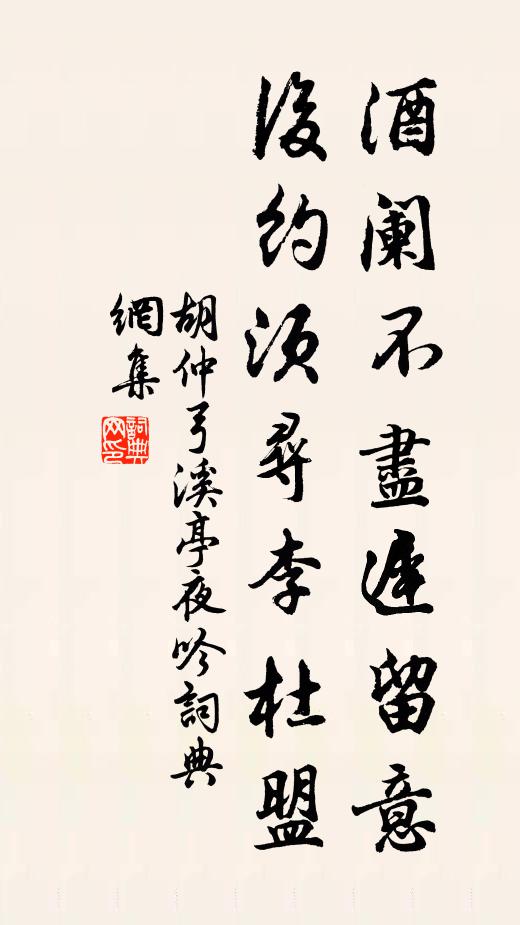 酒阑不盡遲留意
後約須尋李杜盟
胡仲弓溪亭夜吟詞典
網集
詞典網印